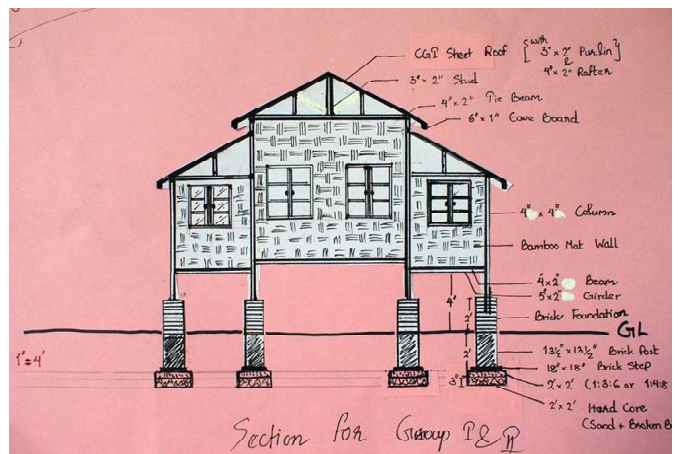 CGI Sheet Roof { with 3" x 2" Purlin }
&
4" x 2" Rafter
3" x 2" Stud
4" x 2" Tie Beam
6" x 1" Eave Board
4" x 4" Column
Bamboo Mat Wall
4" x 2" Beam
5" x 2" Girder
4'
2'
Brick Foundation
GL
1" = 4'
2'
13½" x 13½" Brick Post
18" x 18" Brick Step
3"
2' x 2' (1:3:6 or 1:4:8
2' x 2' Hard Core
(Sand + Broken B
Section for Group I & II